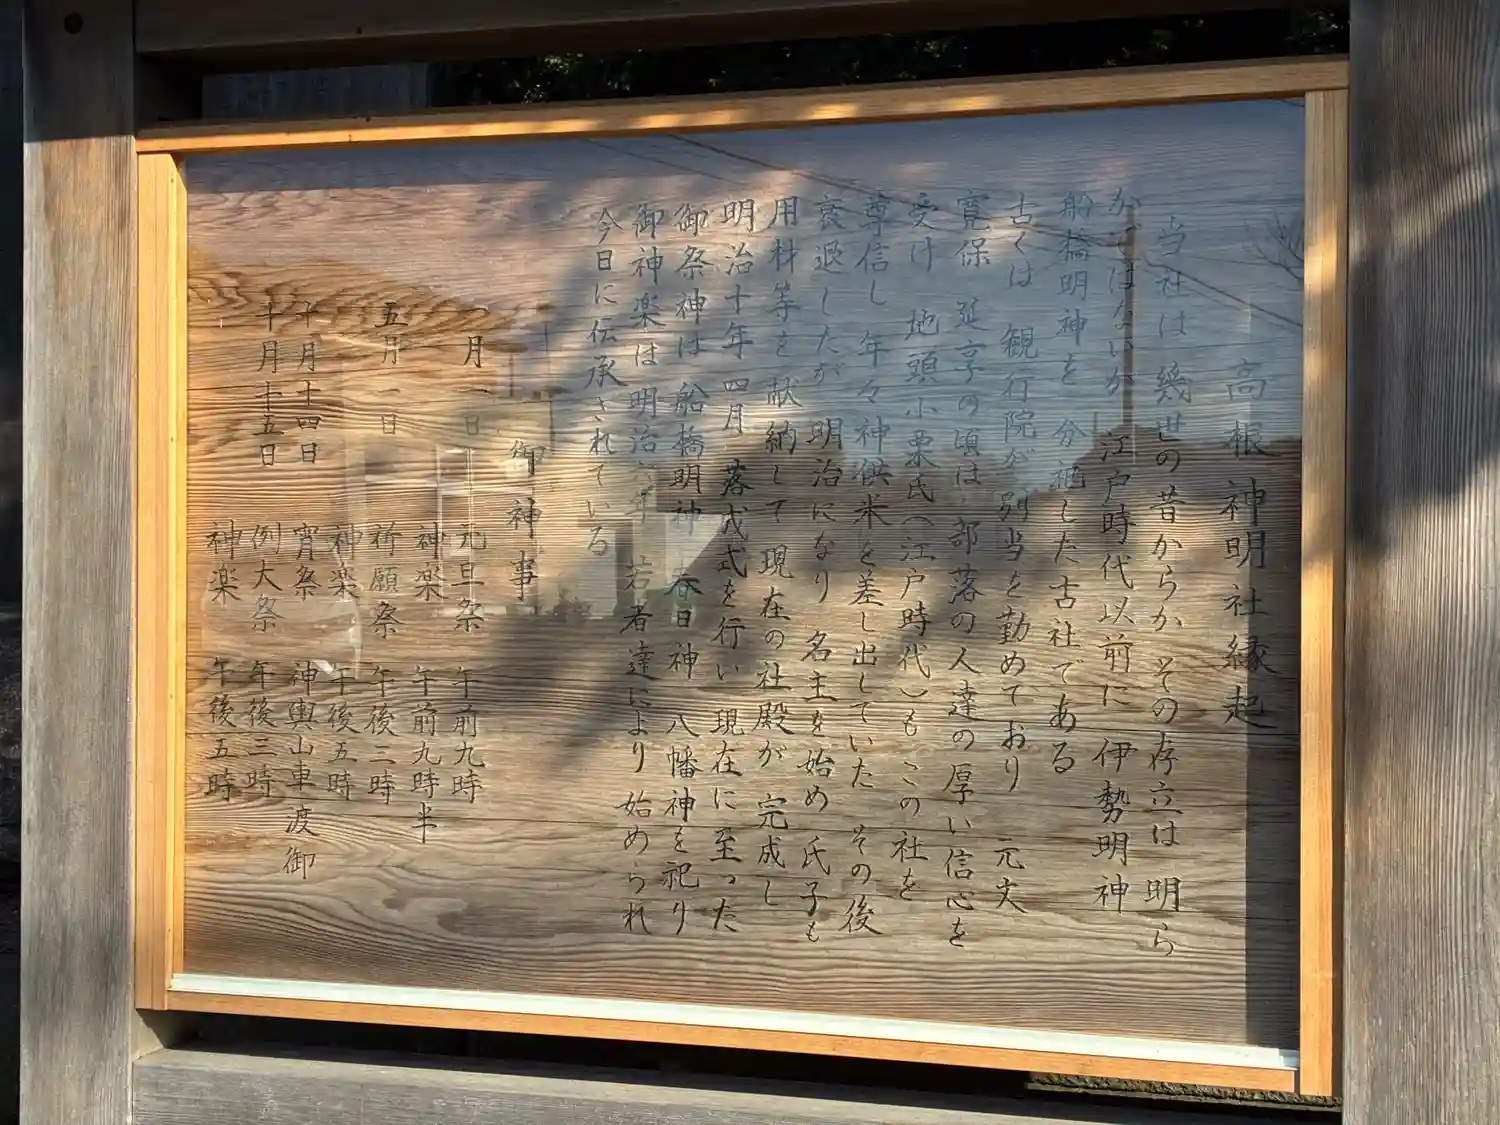 高根神明社縁起
当社は 幾世の昔からか その存立は 明ら
かではないが 江戸時代以前に 伊勢明神
船橋明神を 分祀した古社である
古くは 観行院が 別当を勤めており 元文
寛保 延享の頃は 部落の人達の厚い信心を
受け 地頭小栗氏(江戸時代)も この社を
尊信し 年々神供米を差し出していた その後
衰退したが 明治になり 名主を始め 氏子も
用材等を 献納して 現在の社殿が 完成し
明治十年 四月 落成式を行い 現在に至った
御祭神は 船橋明神 春日神 八幡神を祀り
御神楽は 明治 年 若者達により 始められ
今日に伝承されている
御神事
一月一日 元旦祭 午前九時
神楽 午前九時半
五月一日 祈願祭 午後三時
神楽 午後五時
十月十四日 宵祭 神輿山車渡御
十月十五日 例大祭 午後三時
神楽 午後五時